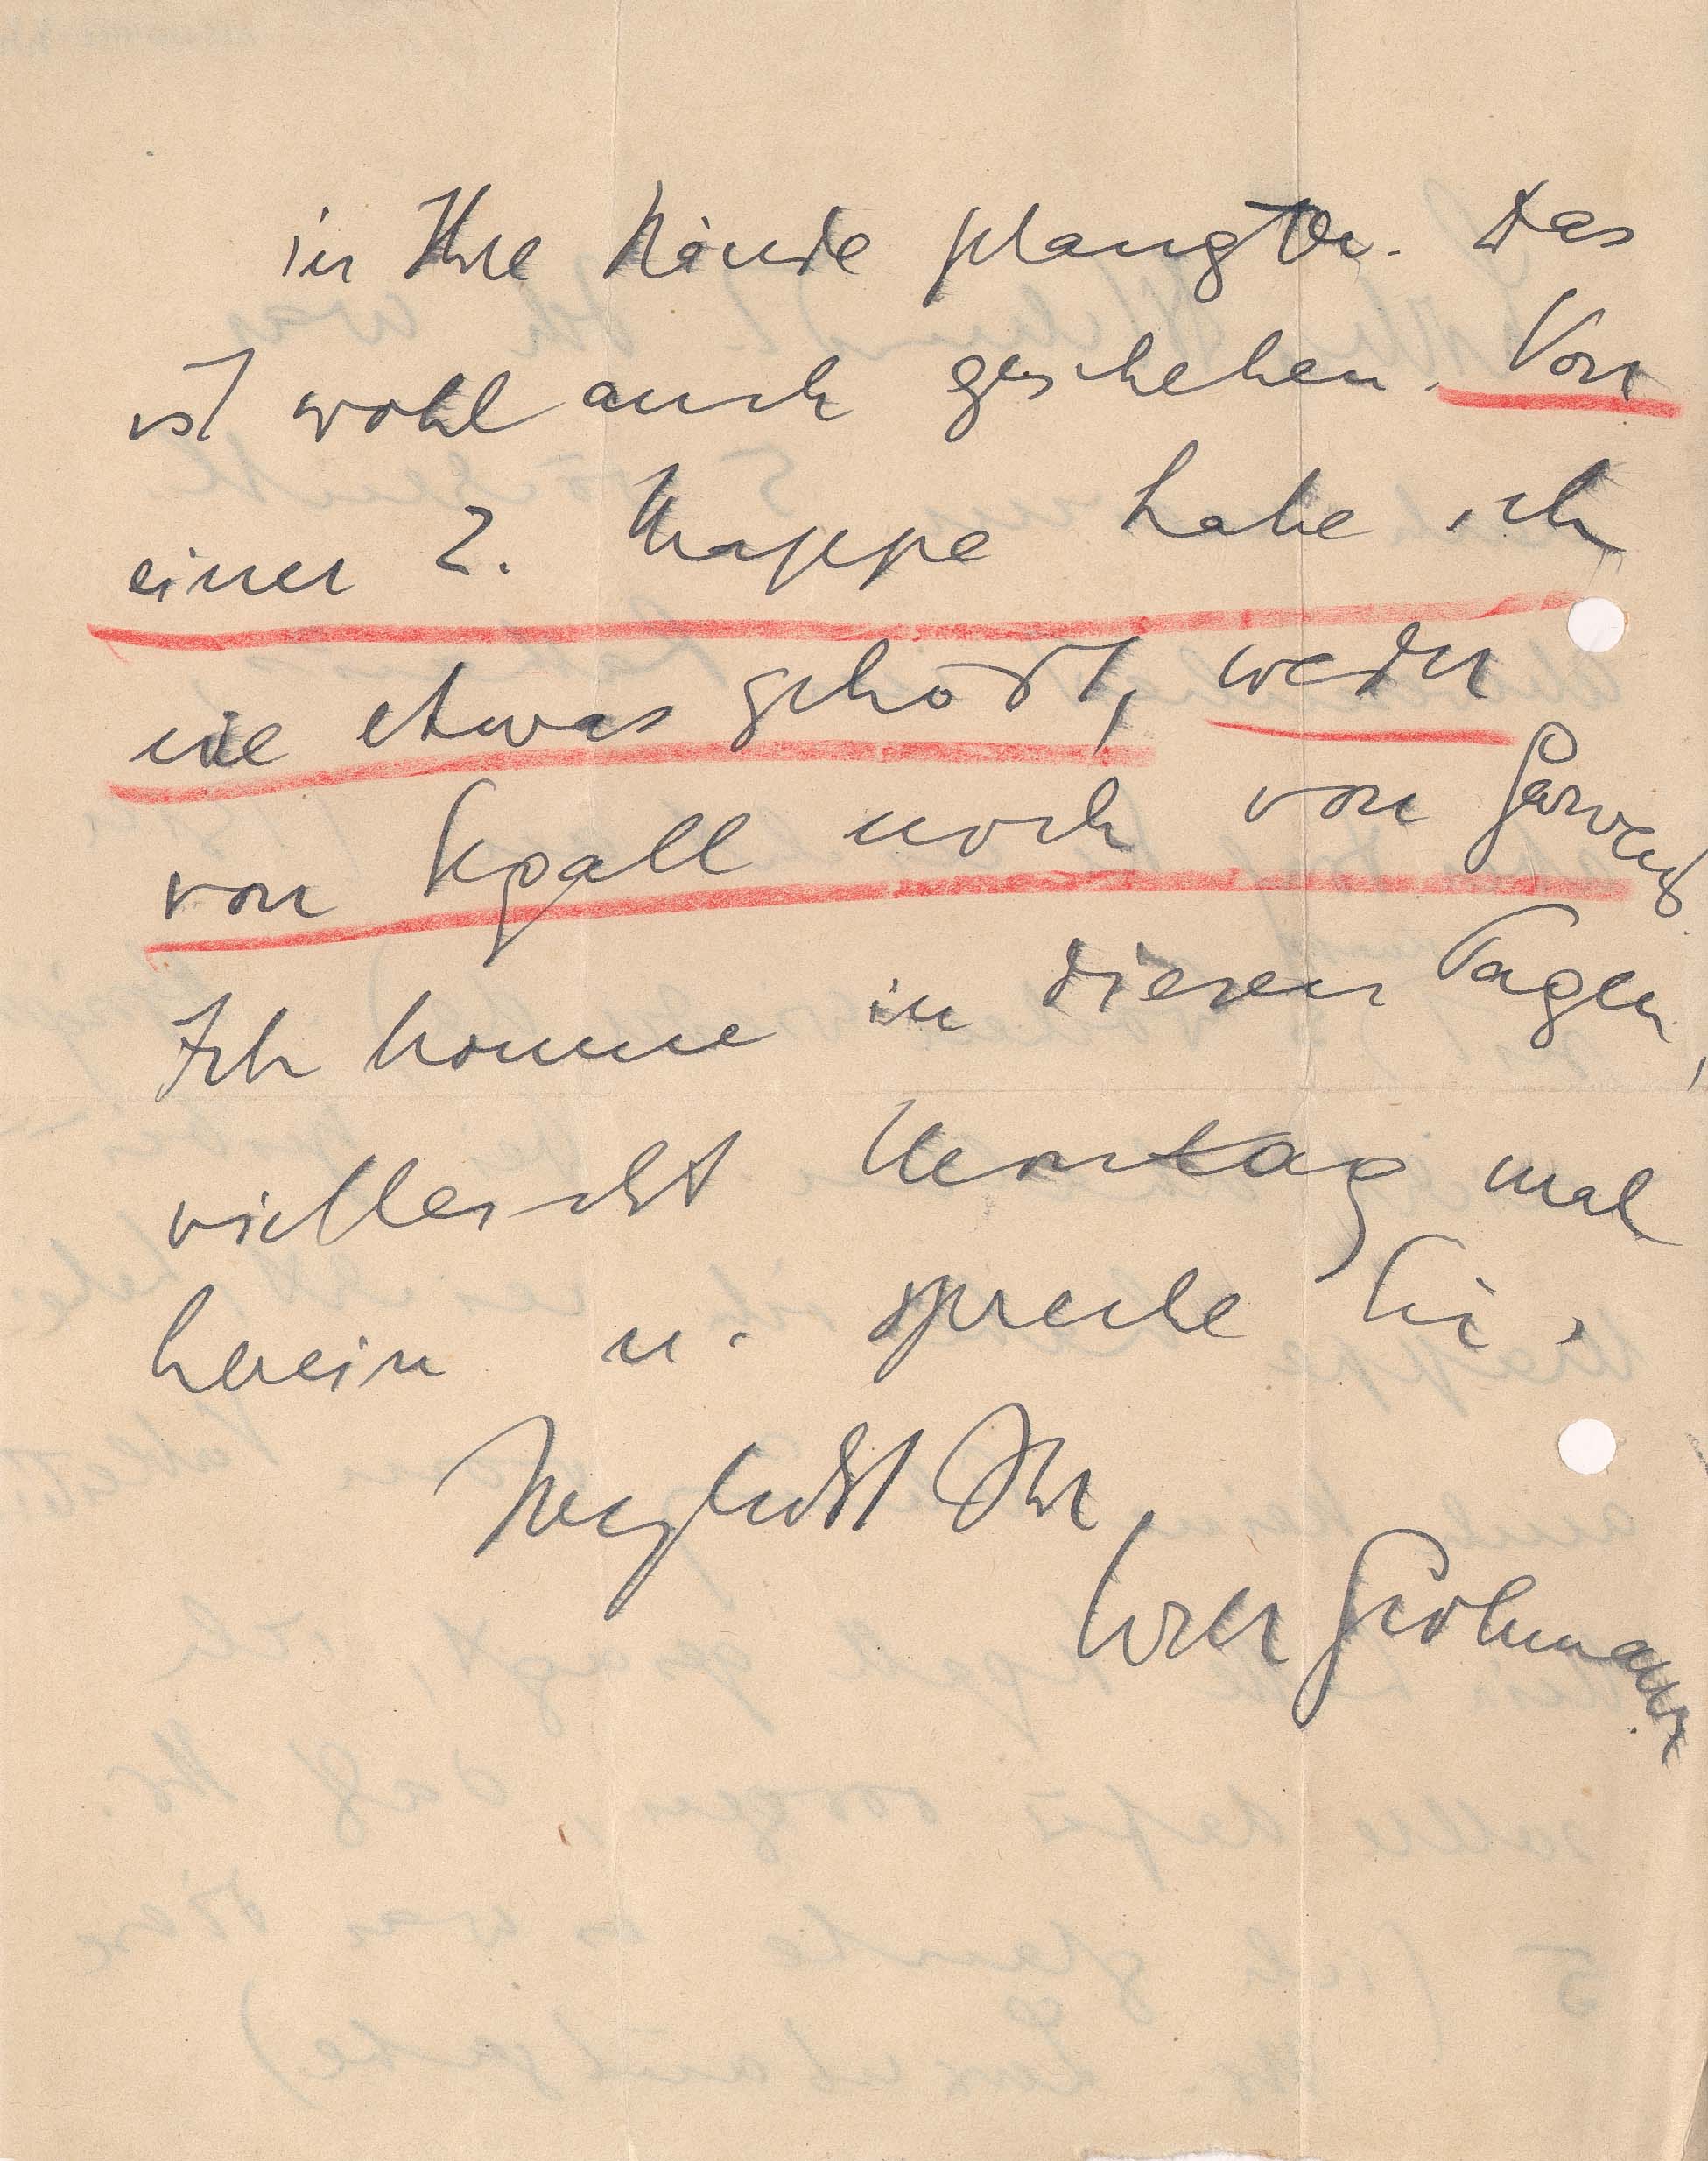 in Ihre Hände gelangten. Das
ist wohl auch geschehen. Von
einer 2. Mappe habe ich
nie etwas gehört, weder
von Kpall noch von
Ich komme in diesen Tagen,
vielleicht Montag mal
herein u. spreche Sie.
Herzlichst Ihr
Grohmann